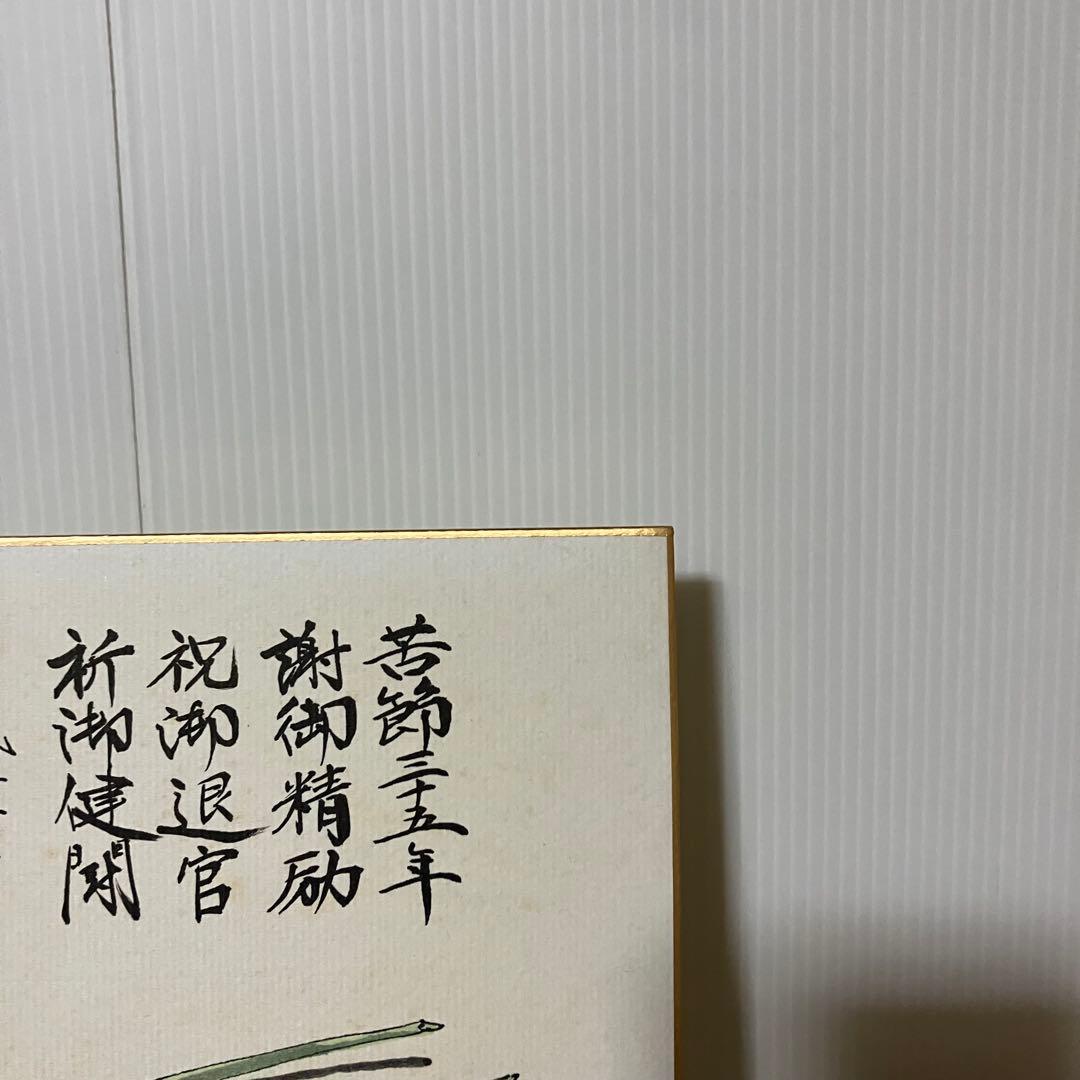 苦節三十五年
謝御精励
祝御退官
祈御健闘